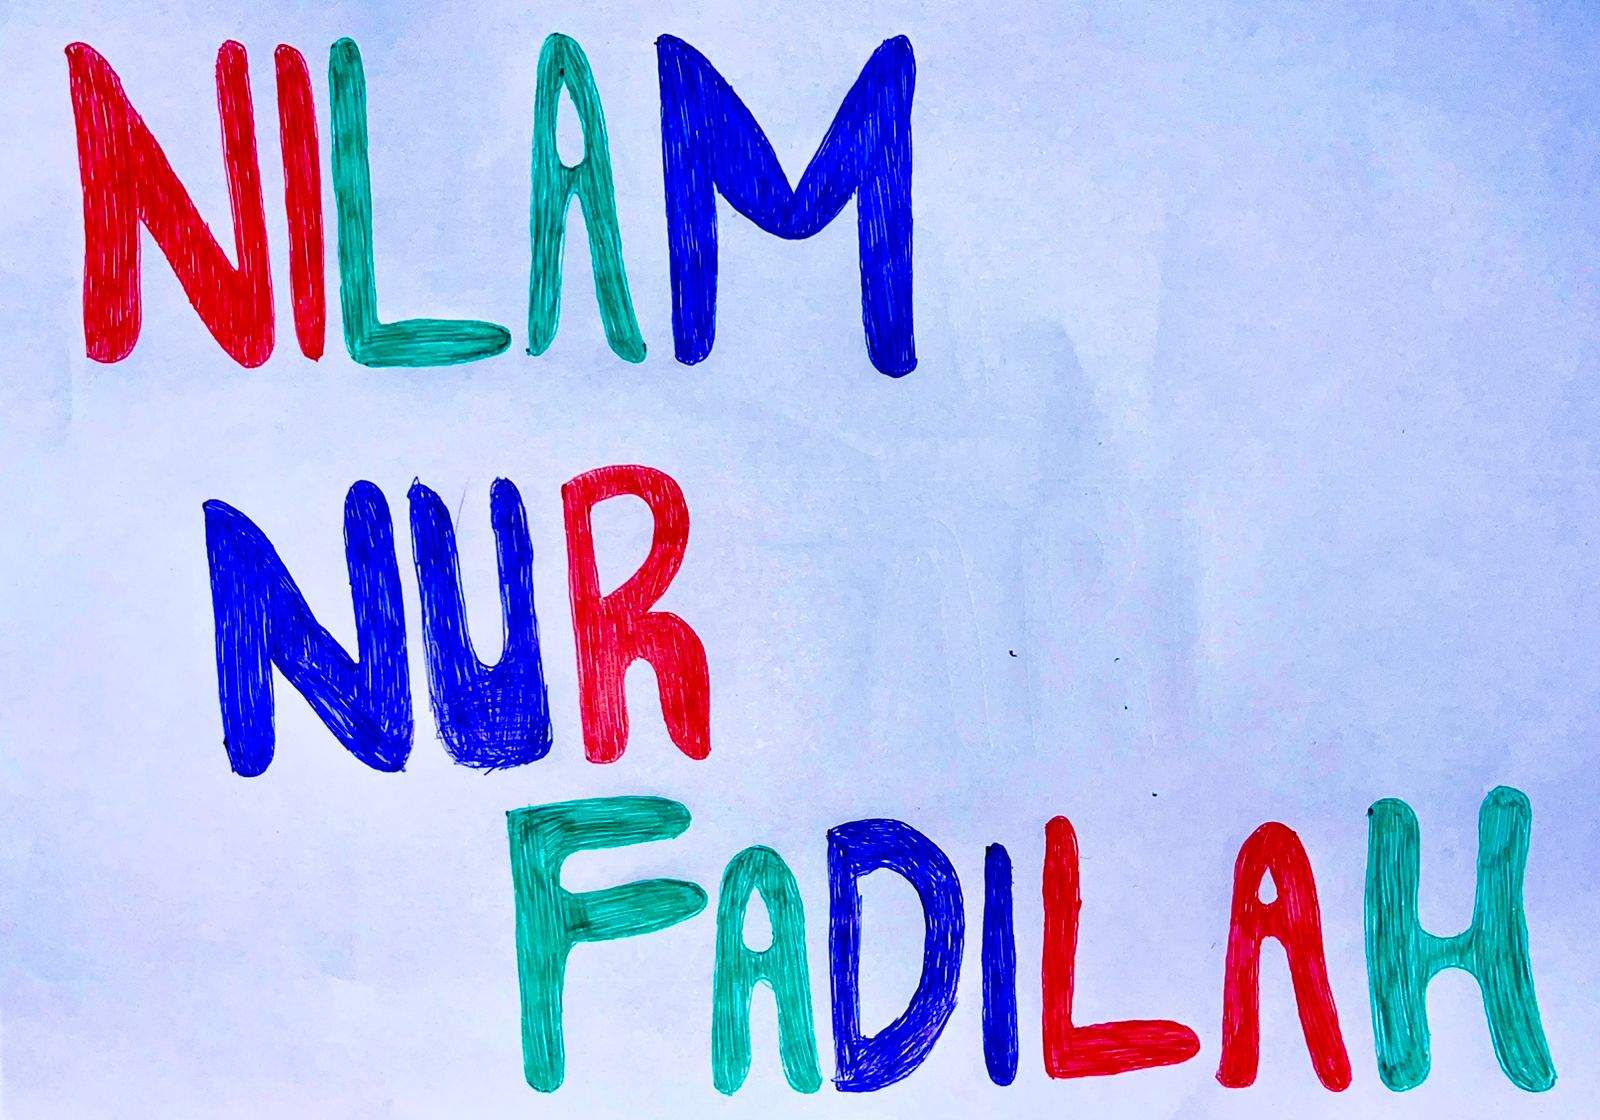 NILAM
NUR
FADILAH